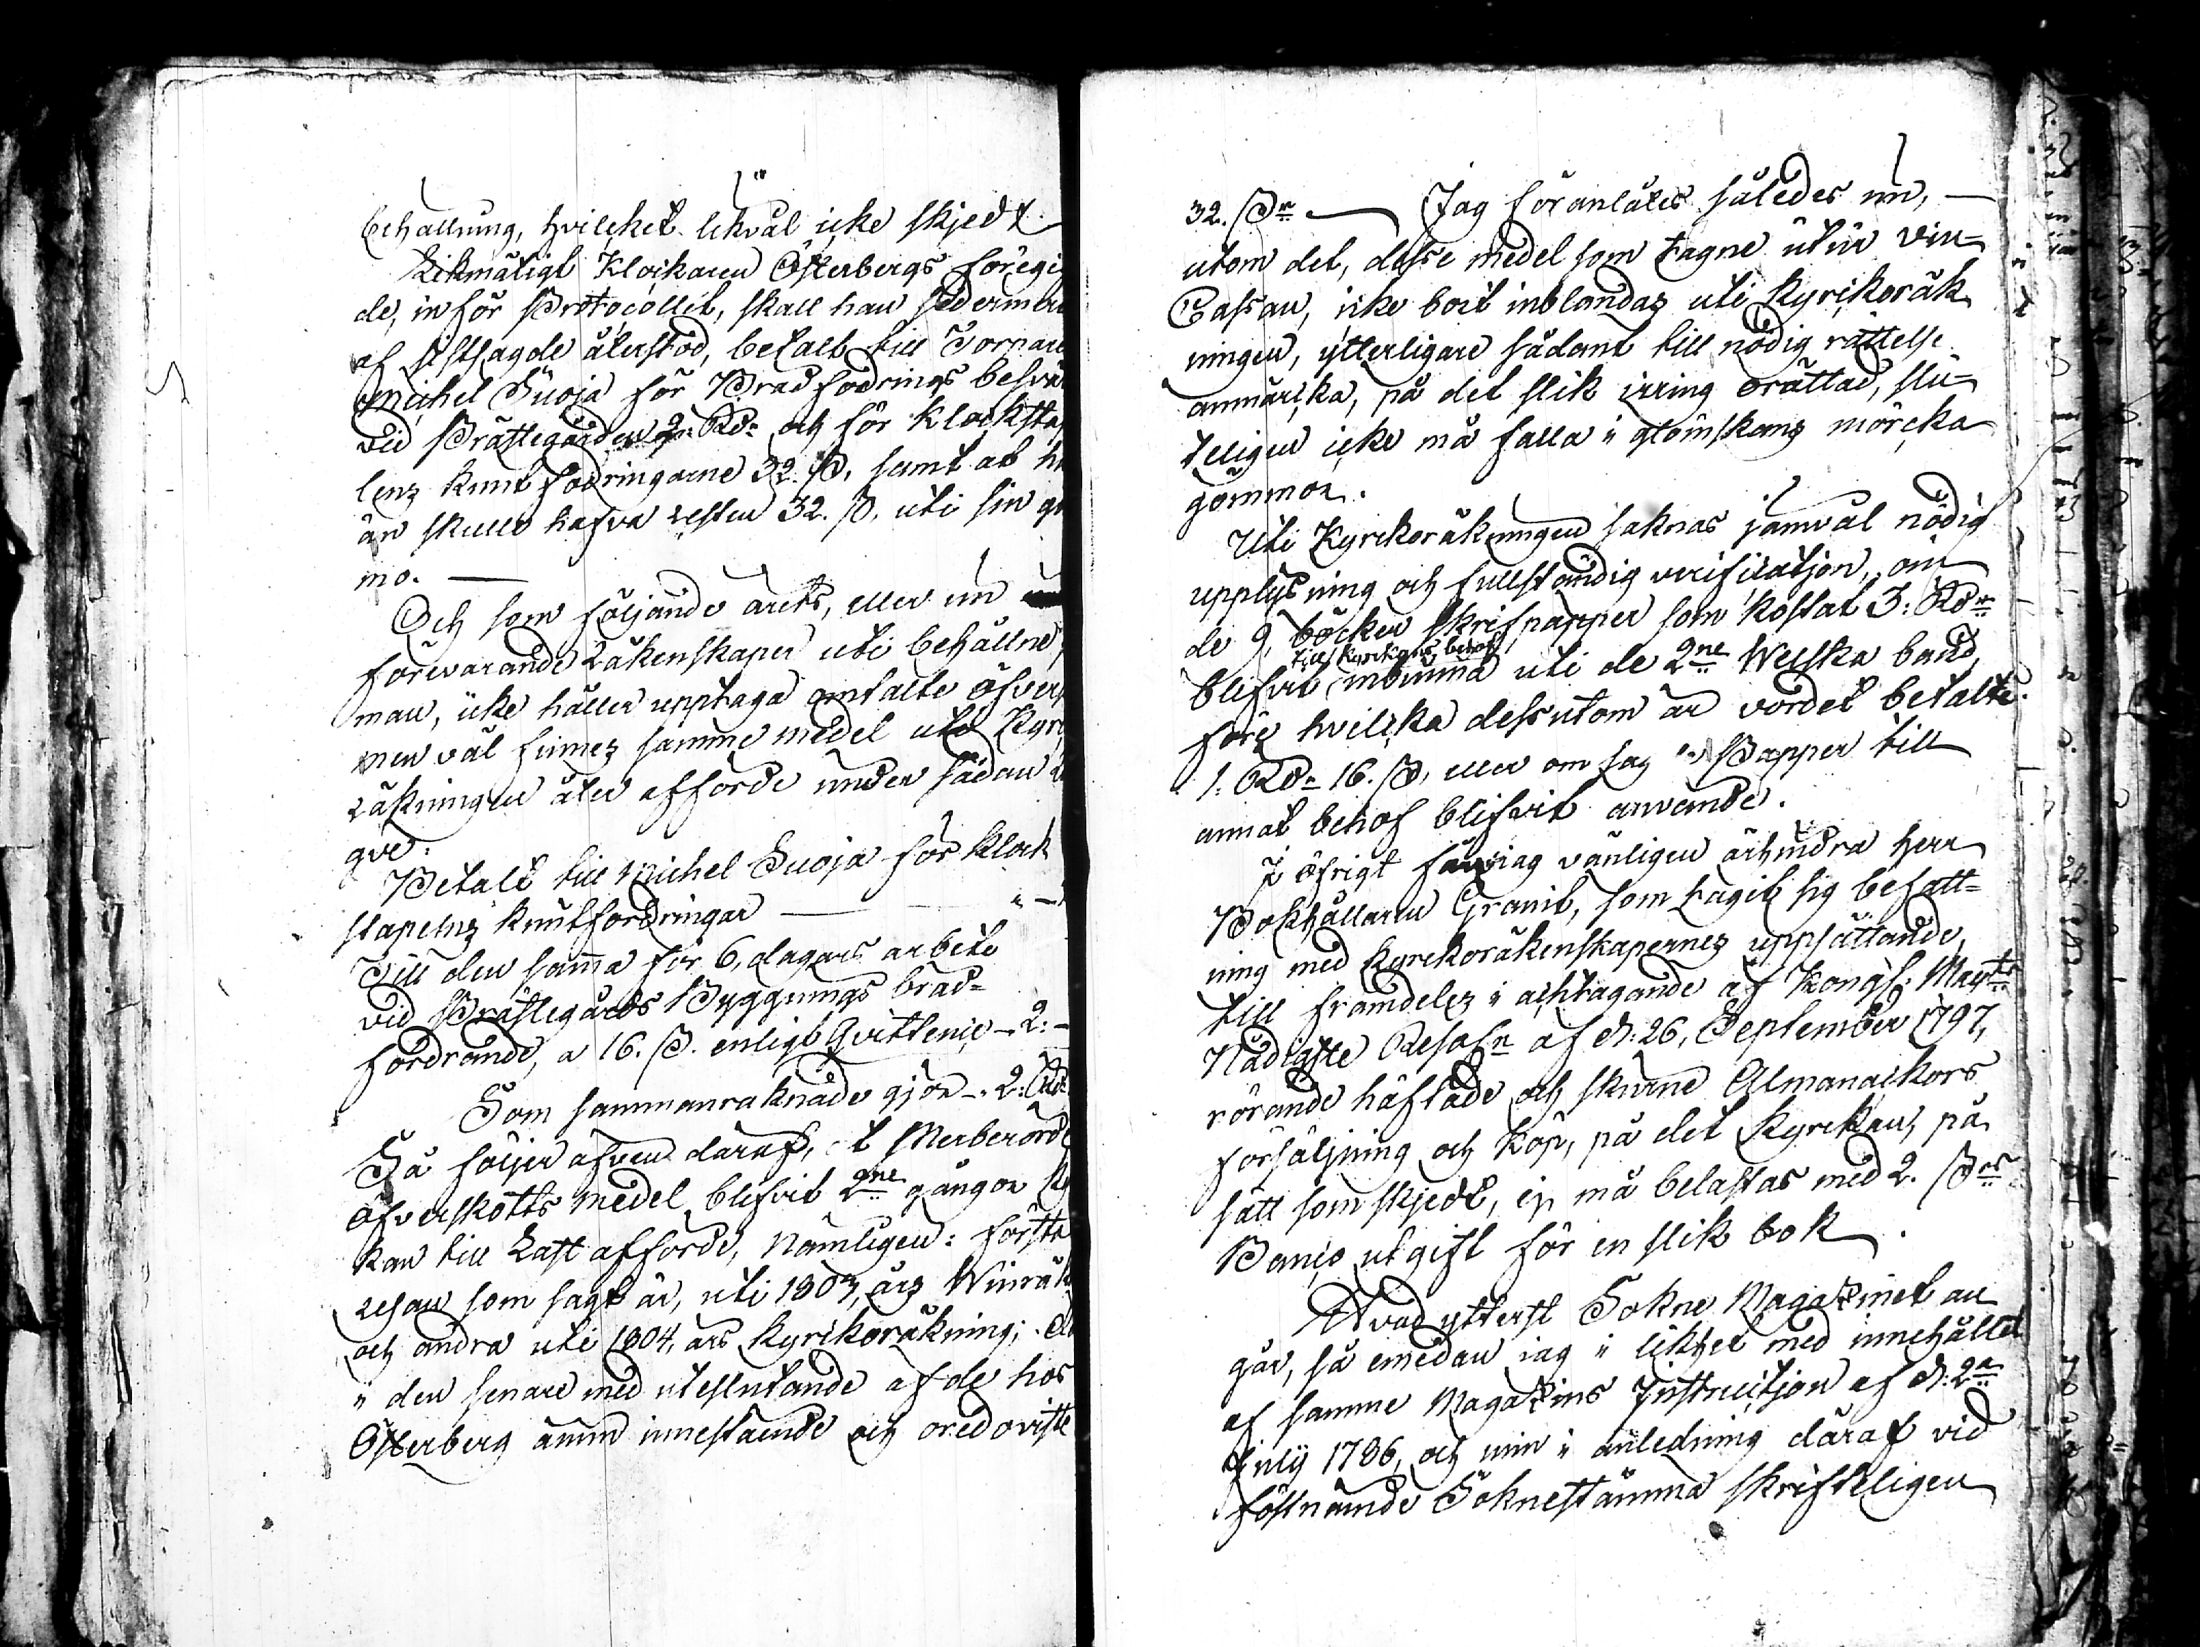 behållning, hvilcket likväl icke skjedt
Likmätigt Klockaren Österbergs föregi
de, inför Protocollet, skall han sedermera
af sistsagde återstod, betalt till Tornare
Michel Suoja för Brädfodrings besvär
vid Prästegården 2. Rd:r och för Klocksta
lens knutfodringarne 32. ß, samt at h
än skulle hafva resten 32. ß, uti sin gö
mo.
Och som följande årets, eller nu
förevarande Räkenskaper uti behållne
man, icke häller upptaga omtalte öfver
men väl finnes samme medel uti Kyrc
räkningen åter afförde under sådan
gve:
Betalt till Michel Suoja för Klock
stapelns knutfordringar — " —
Till den samma för 6, dagars arbete
vid Prästegårds Byggnings bräd=
fordrande, a 16. ß. enligt Qvittence — 2: —
Som sammanräknade gjör — 2: Rd
Så följer äfven däraf, at Merberörde
öfverskotts medel blifvit 2ne gångor Ky
kan till Last afförde, Nämligen: första
resan som sagt är, uti 1803, års Winräk
och andra uti 1804, års Kyrckoräkning;
i den senare med uteslutande af de hos
Österberg ännu innestående och oredoviste
32. ß:r — Jag föranlåtes således nu, —
utom det, desse medel som tagne utur vin=
Cassan, icke bort inblandas uti Kyrckoräk
ningen, ytterligare sådant till nödig rättelse
anmärcka, på det slik irring orättad, slu=
teligen icke må falla i glömskans mörcka
gömmor.
Uti Kyrckoräkningen saknas jämväl nödig
upplysning och fullständig verification, om
de 9, böcker Skrifpapper som kostat 3: Rd:r
till Kyrckans behof
blifvit inbunna uti de 2ne Welska band,
före hvilcka dessutom är vordet betalte
1. Rd:r 16. ß, eller om sag " Papper till
annat behof blifvit använde.
I öfrigt får jag vänligen åthindra Herr
Bokhållaren Granit, som tagit sig befatt=
ning med Kyrckoräkenskapernes uppsättande,
till framdeles i achtagande af Kongl: Maj:ts
Nådigste Resol:n af d: 26, September 1797,
rörande häftade och skurne Almanackors
försäljning och köp, på det Kyrckan, på
sätt som skjedt, ej må belastas med 2. ß:rs
Banco utgift för en slik bok.
Hvad ytterst Sokne Magazinet an
går, så emedan jag i likhet med innehållet
af samme Magazins Instruction af d: 2a
Julij 1786, och min i anledning däraf vid
föstnämde Soknestämma skrifteligen